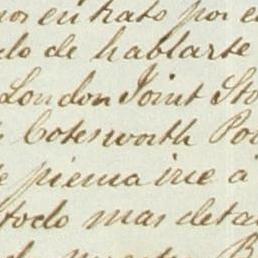 en trato por e
do de hablarte
London Joint Sto
Cotesworth Po
piema ire a
todo mas deta